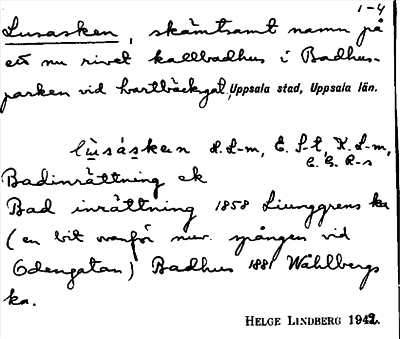 1-4
Lusasken, skämtsamt namn på
ett nu rivet kallbadhus i Badhus-
parken vid Svartbäcksgat, Uppsala stad, Uppsala län.
lùsásken H. L-m, E. S-t, K. L-m,
C. G. R-s
Badinrättning ek
Bad inrättning 1858 Ljunggrens ka
(en bit ovanför nuv. spången vid
Odengatan) Badhus 1881 Wahlbergs
ka.
HELGE LINDBERG 1942.